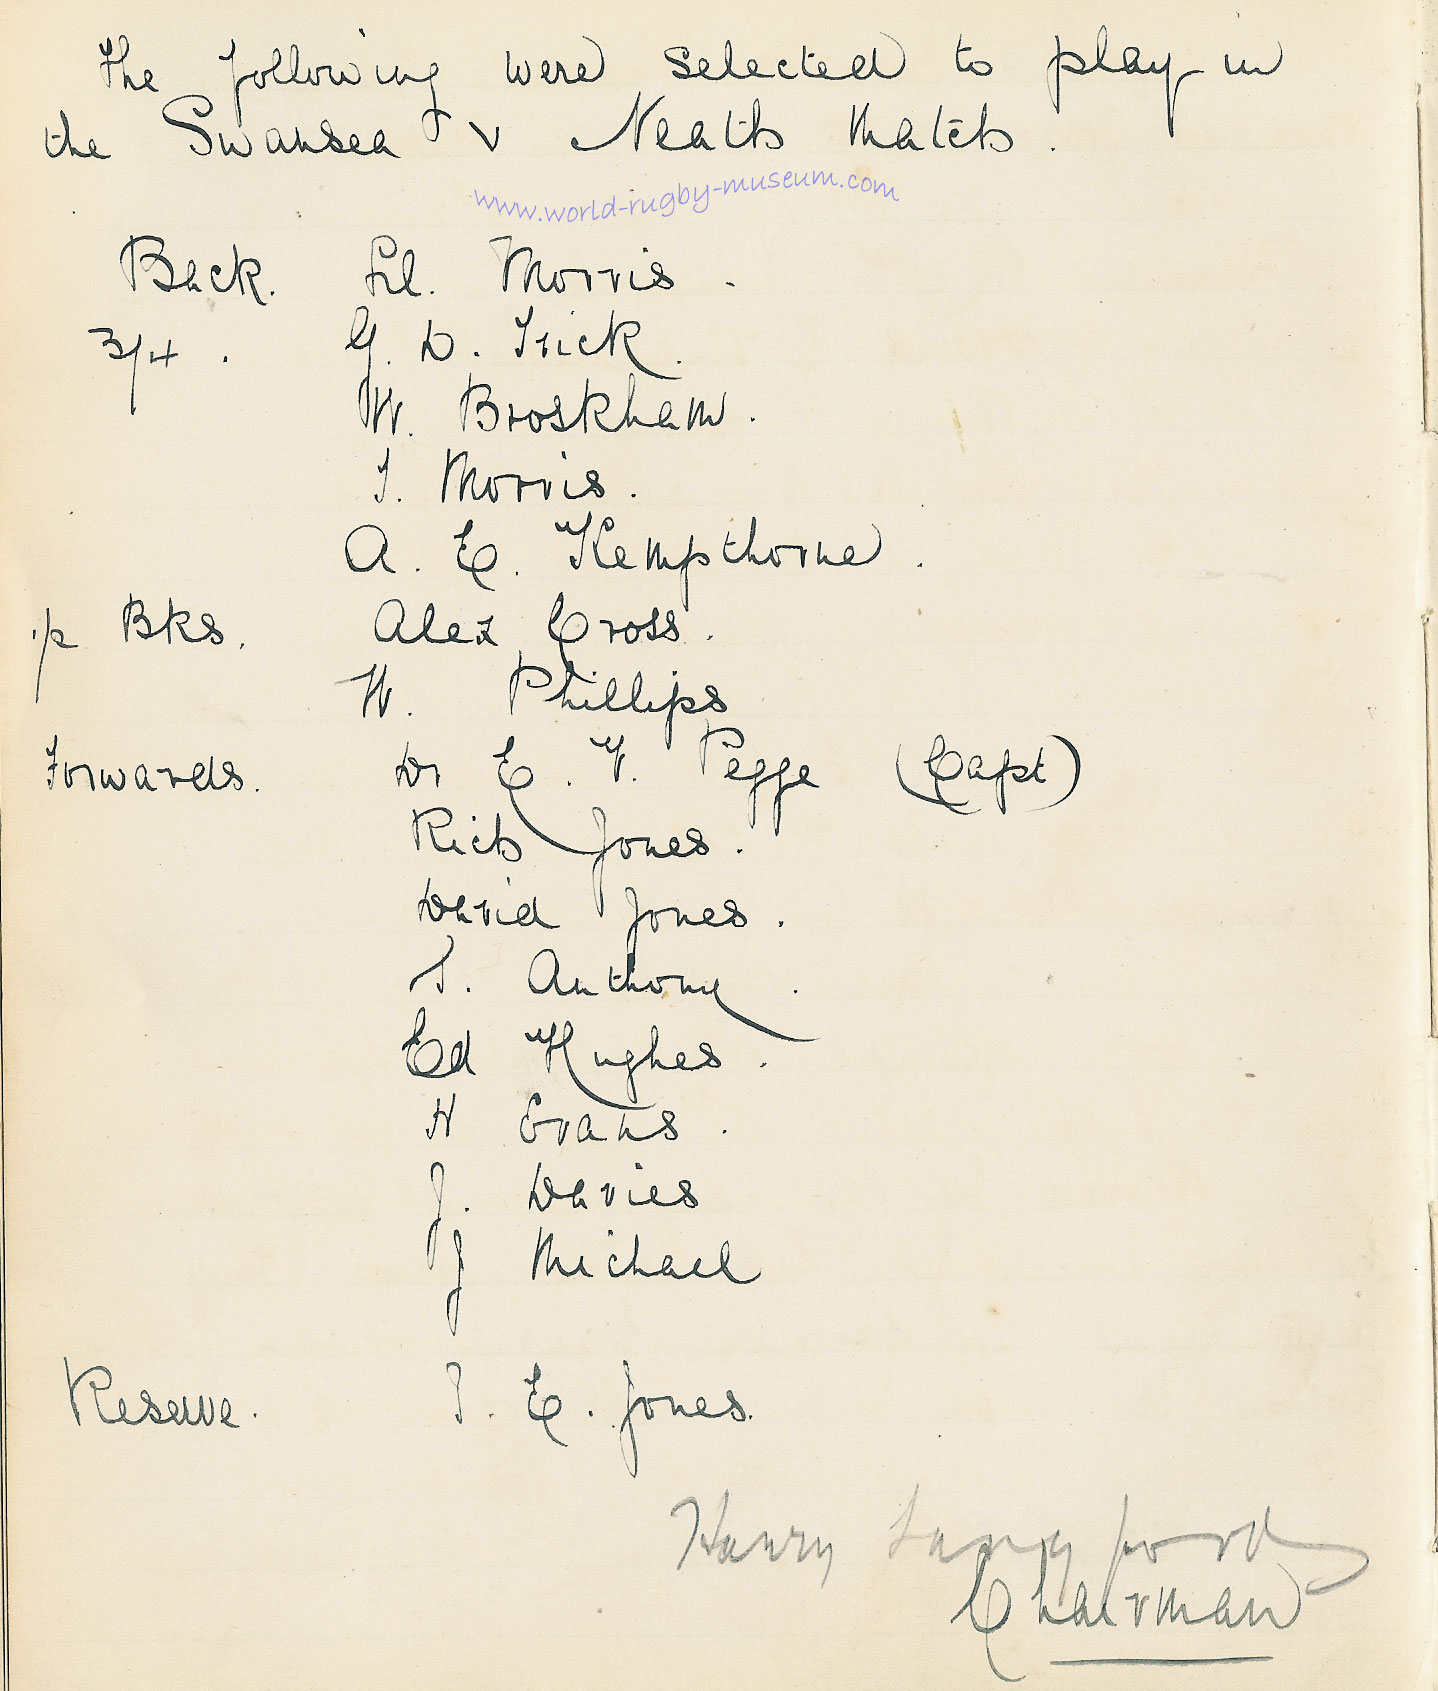 The following were selected to play in
the Swansea v Neath Match.
www.world-rugby-museum.com
Back. Morris.
3/4. G. D. Trick.
W. Broskham.
T. Morris.
A. E. Kempthorne.
1/2 Bks. Alex Cross.
W. Phillips
Forwards. Dr E. V. Pegge (Capt)
Rich Jones.
David Jones.
T. Anthony.
Ed Hughes.
H Evans.
J. Davies
J Michael
Reserve. T. E. Jones.
Harry Langford
Chairman